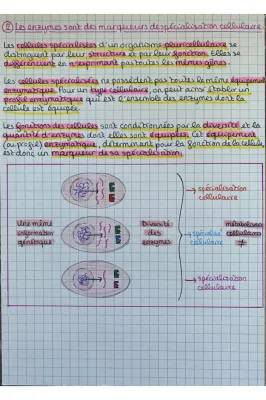 ② Les enzymes sont des marqueurs de spécialisation cellulaire.
Les cellules spécialisées d'un organisme pluricellulaire se
distinguent par leur structure et par leur fonction. Elles se
différencient en n'exprimant pas toutes les mêmes gènes.
Les cellules spécialisées ne possèdent pas toutes le même équipement
enzymatique. Pour un type cellulaire, on peut ainsi établir un
profil enzymatique qui est l'ensemble des enzymes dont la
cellule est équipée.
Les fonctions des cellules sont conditionnées par la diversité et la
quantité d'enzymes dont elles sont équipées. Cet équipement
(ou profil) enzymatique, déterminant pour la fonction de la cellule
est donc un marqueur de sa spécialisation.
→ spécialisation
cellulaire
Une même
information
génétique
Diversité
des
enzymes
→ spécialisé
cellulaire
métabolismes
cellulaires
≠
→ spécialisation
cellulaire